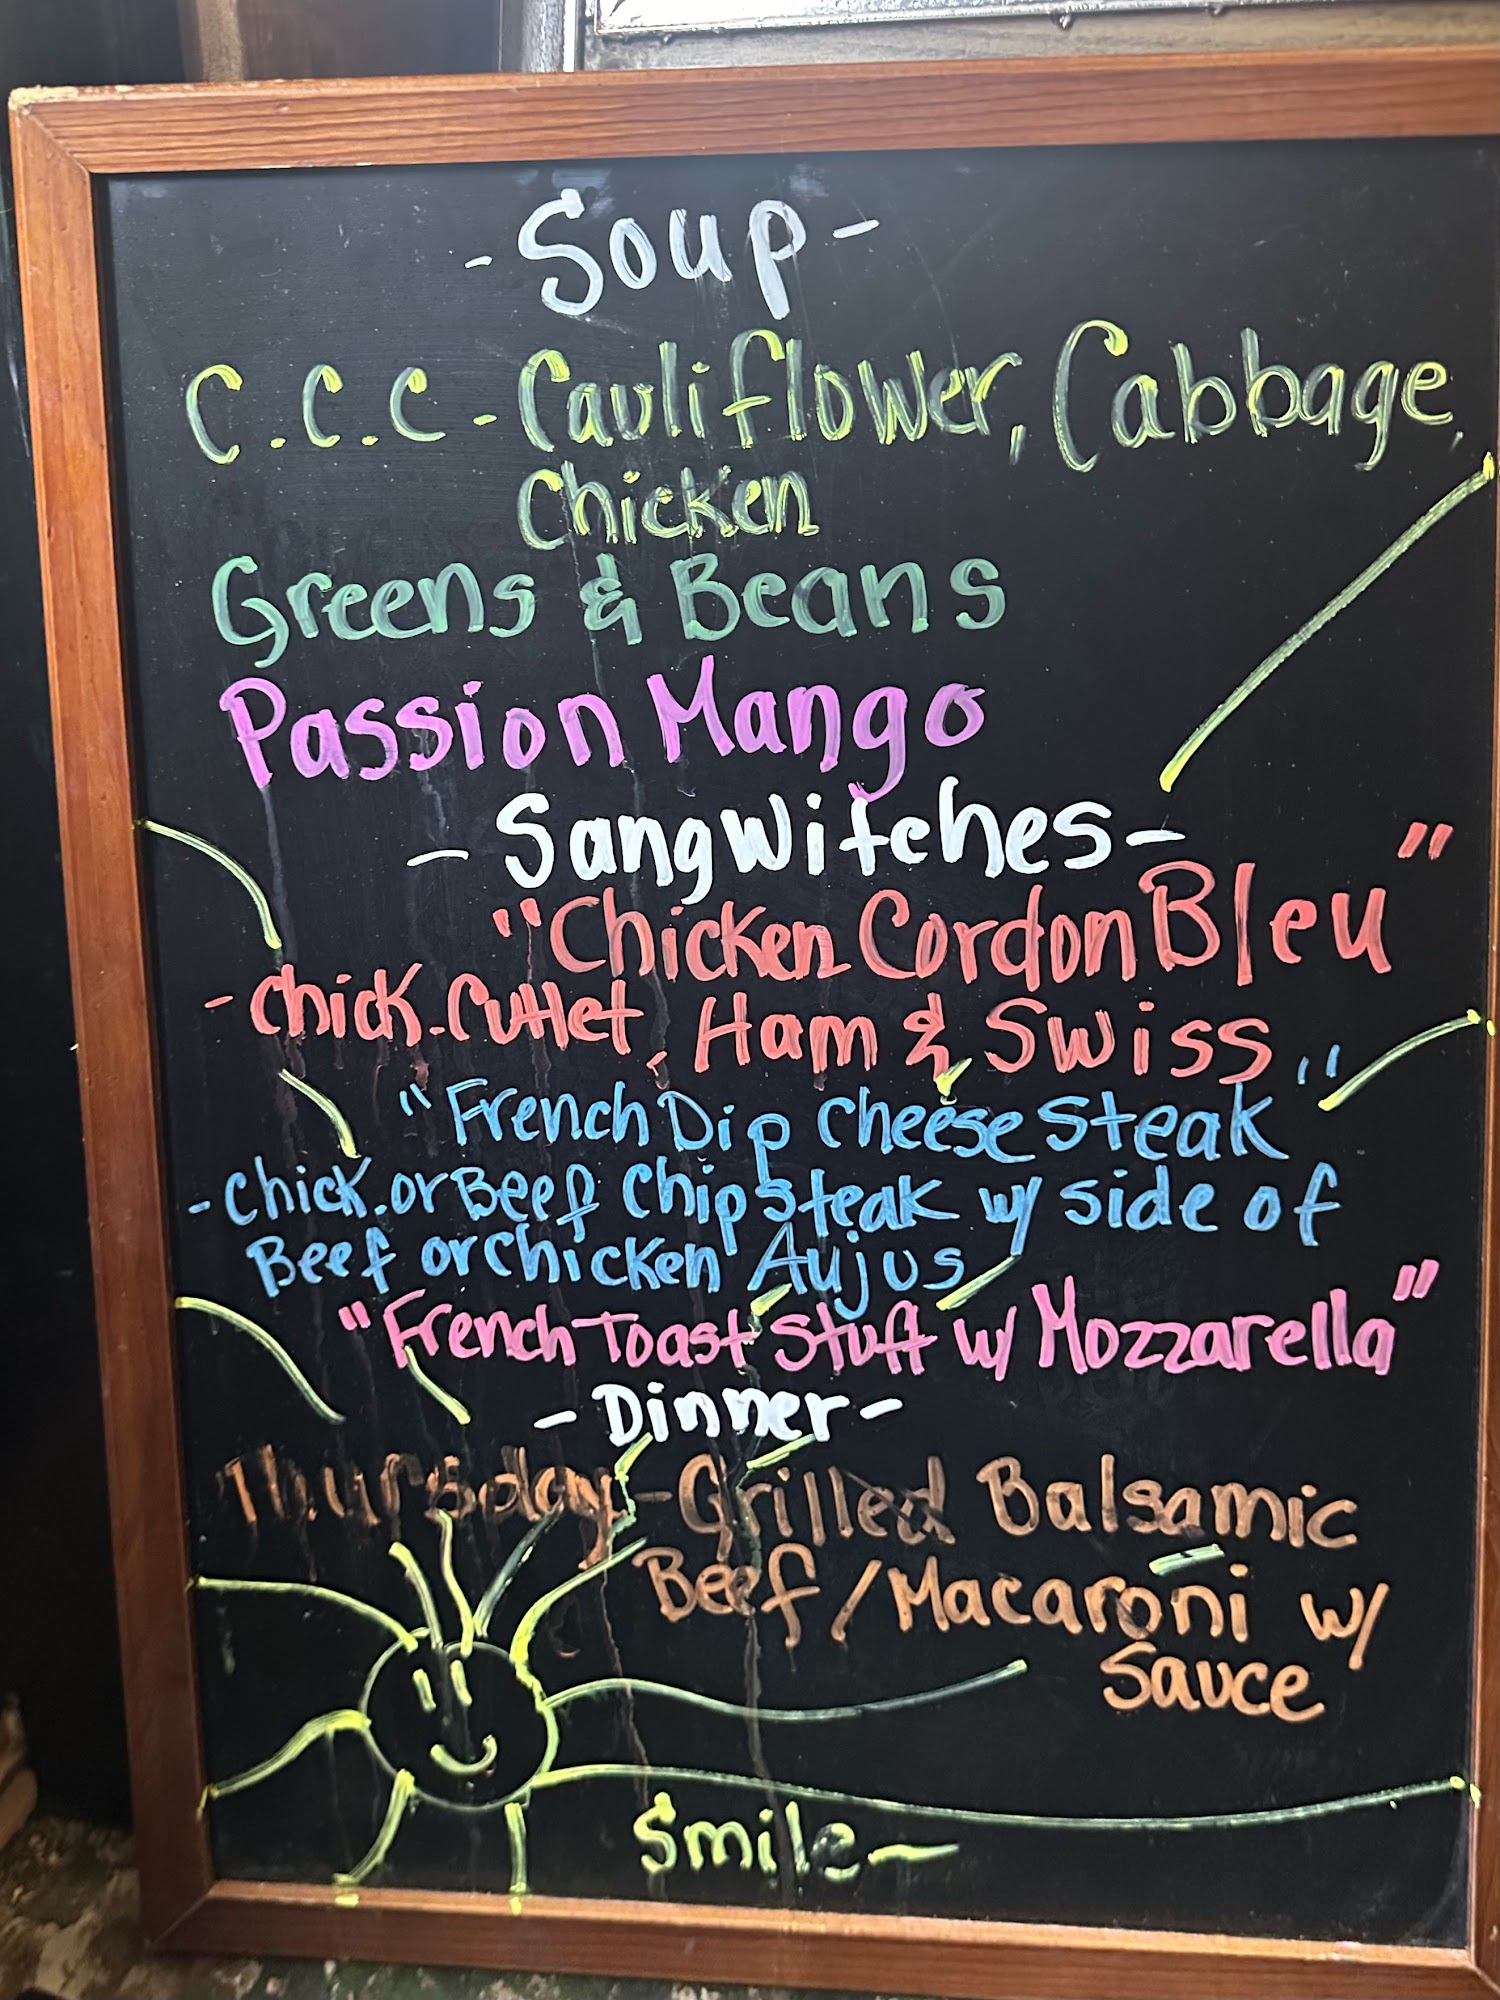 - Soup -
C.C.C. - Cauliflower, Cabbage,
Chicken
Greens & Beans
Passion Mango
- Sangwitches -
"Chicken Cordon Bleu"
- Chick. Cutlet, Ham & Swiss
"French Dip Cheese Steak"
- Chick. or Beef Chip Steak w/ side of
Beef or Chicken Aujus
"French Toast Stuff w/ Mozzarella"
- Dinner -
Thursday - Grilled Balsamic
Beef / Macaroni w/
Sauce
Smile -